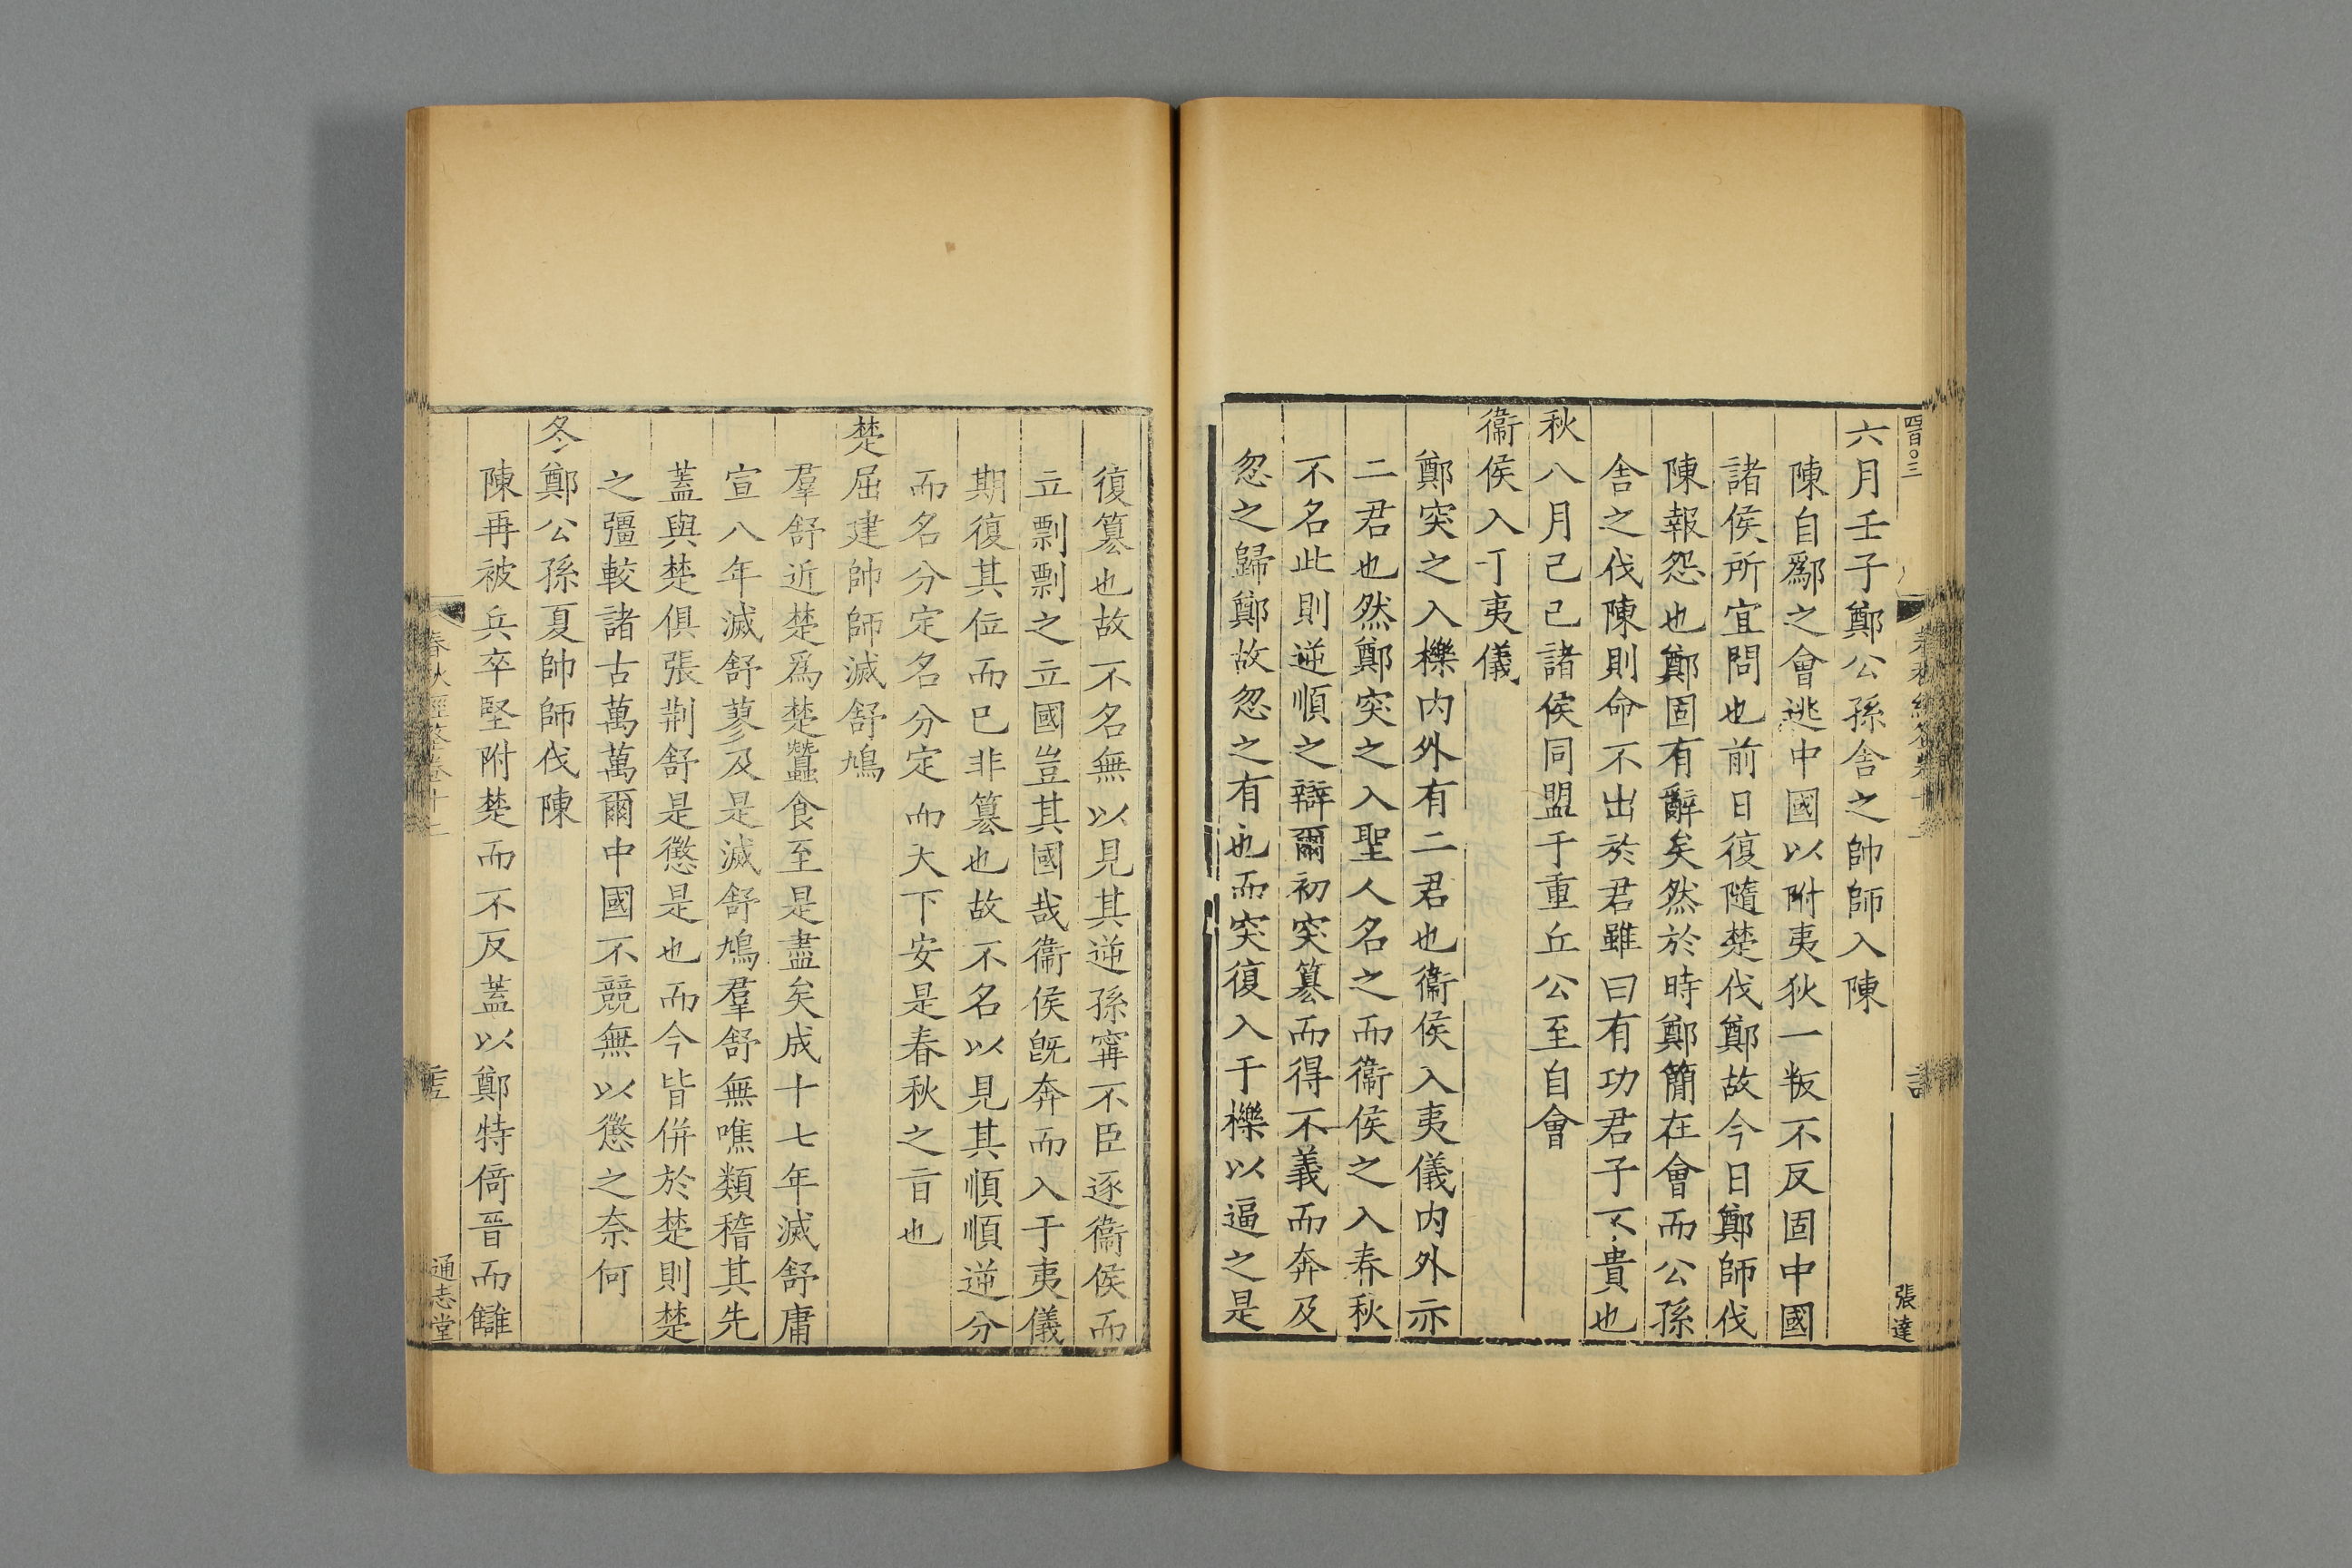 四百〇三
六月壬子鄭公孫舍之帥師入陳
陳自鄬之會逃中國以附夷狄一叛不反固中國
諸侯所宜問也前日復隨楚伐鄭故今日鄭師伐
陳報怨也鄭固有辭矣然於時鄭簡在會而公孫
舍之伐陳則命不出於君雖曰有功君子不貴也
秋八月己巳諸侯同盟于重丘公至自會
衞侯入于夷儀
鄭突之入櫟內外有二君也衞侯入夷儀內外示
二君也然鄭突之入聖人名之而衞侯之入春秋
不名此則逆順之辯爾初突篡而得不義而奔及
忽之歸鄭故忽之有也而突復入于櫟以逼之是
張達
復篡也故不名無以見其逆孫甯不臣逐衞侯而
立剽剽之立國豈其國哉衞侯旣奔而入于夷儀
期復其位而已非篡也故不名以見其順順逆分
而名分定名分定而大下安是春秋之旨也
楚屈建帥師滅舒鳩
羣舒近楚爲楚蠶食至是盡矣成十七年滅舒庸
宣八年滅舒蓼及是滅舒鳩羣舒無噍類稽其先
蓋與楚俱張荆舒是懲是也而今皆併於楚則楚
之彊較諸古萬萬爾中國不競無以懲之奈何
冬鄭公孫夏帥師伐陳
陳再被兵卒堅附楚而不反蓋以鄭特倚晉而讎
春秋經筌卷十二
通志堂